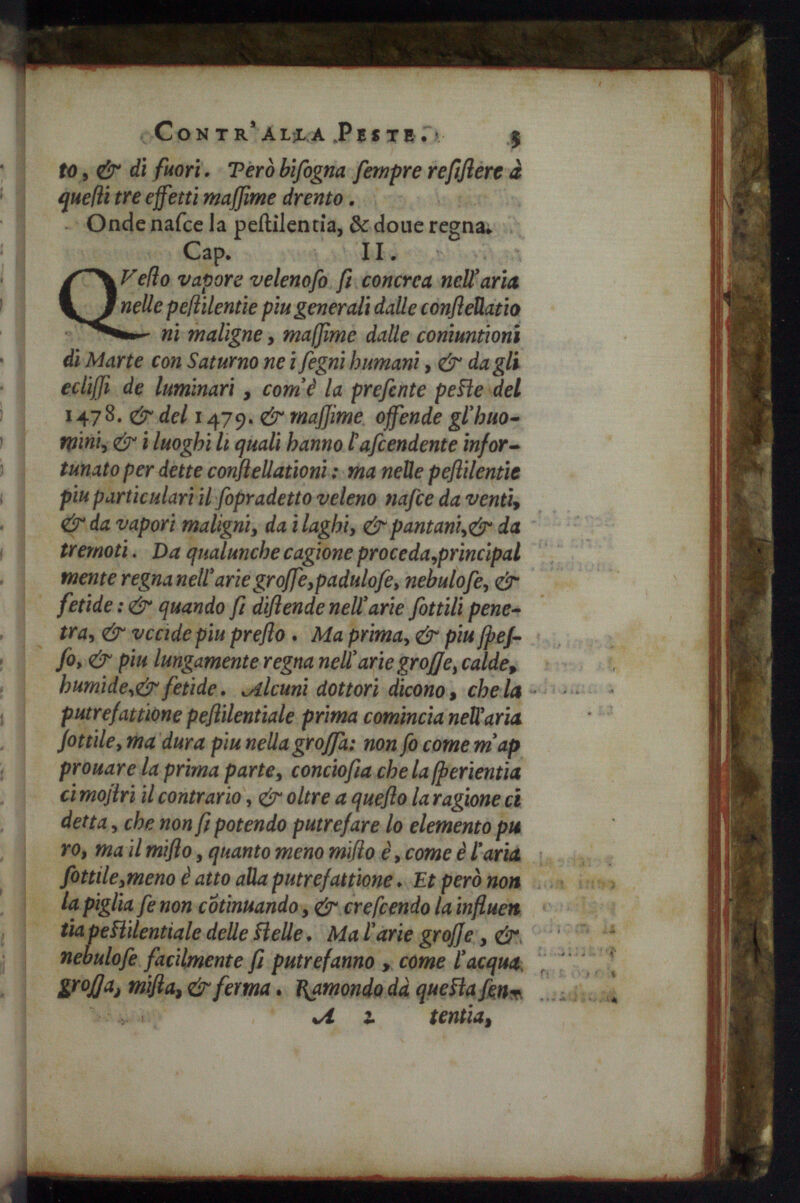 CONTR'ALLA PESTE. 3
to, & di fuori. Però bisogna sempre resistere à
questi tre effetti massime drento.
Onde nasce la pestilentia, & doue regna.
Cap. II.
QVesto vapore velenoso si concrea nell'aria
nelle pestilentie piu generali dalle constellatio
ni maligne, massime dalle coniuntioni
di Marte con Saturno ne i segni humani, & da gli
eclissi de luminari, com'è la presente peste del
1478. & del 1479. & massime offende gl'huo-
mini, & i luoghi li quali hanno l'ascendente infor-
tunato per dette constellationi: ma nelle pestilentie
piu particulari il sopradetto veleno nasce da venti,
& da vapori maligni, da i laghi, & pantani,& da
tremoti. Da qualunche cagione proceda,principal
mente regna nell'arie grosse,padulose, nebulose, &
fetide: & quando si distende nell'arie sottili pene-
tra, & vccide piu presto. Ma prima, & piu spes-
so, & piu lungamente regna nell'arie grosse, calde,
humide,& fetide. Alcuni dottori dicono, che la
putrefattione pestilentiale prima comincia nell'aria
sottile, ma dura piu nella grossa: non so come m'ap
prouare la prima parte, conciosia che la sperientia
ci mostri il contrario, & oltre a questo la ragione ci
detta, che non si potendo putrefare lo elemento pu
ro, ma il misto, quanto meno misto è, come è l'aria
sottile,meno è atto alla putrefattione. Et però non
la piglia se non cõtinuando, & crescendo la influen
tia pestilentiale delle stelle. Ma l'arie grosse, &
nebulose facilmente si putrefanno, come l'acqua
grossa, mista, & ferma. Ramondo dà questa sen-
A 2 tentia,